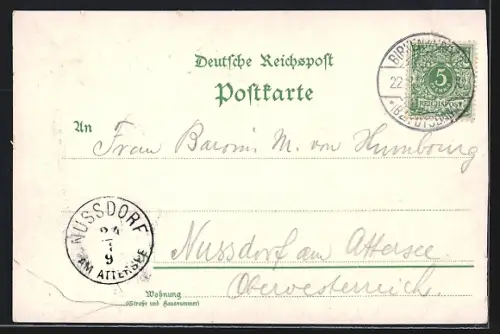 Deutsche Reichspost
Postkarte
5
REICHSPOST
22
An
Frau Baronin M. von Humbourg
NUSSDORF
24
9
AM ATTERSEE
Nussdorf am Attersee
Oberoesterreich.
Wohnung
(Straße und Hausnummer)